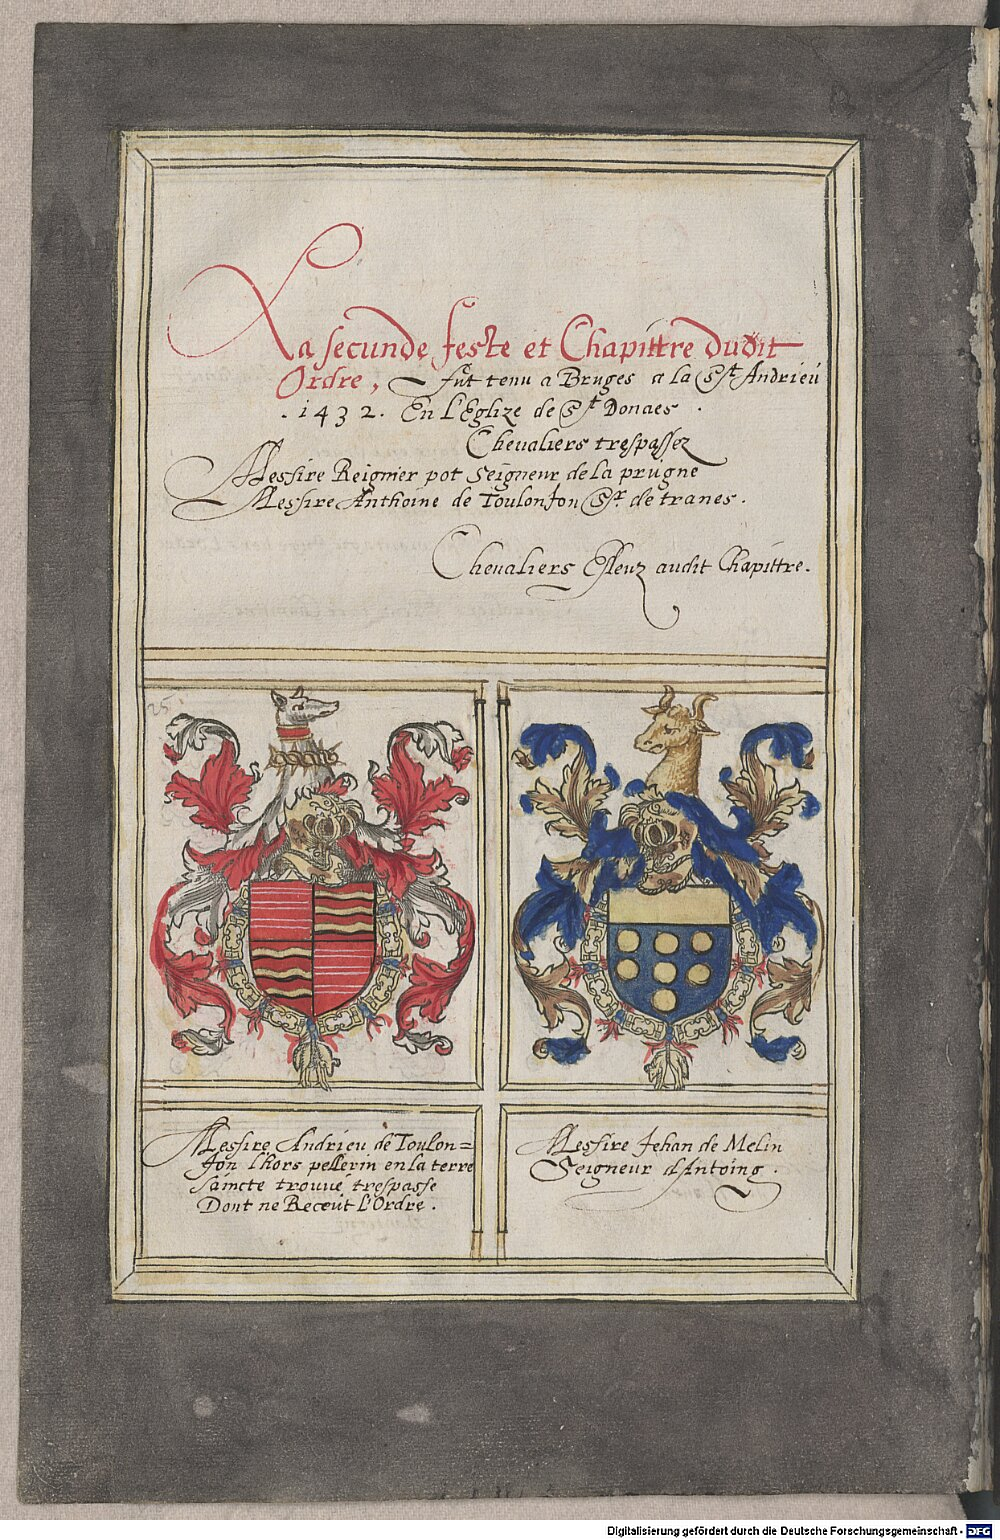 La secunde feste et Chapittre dudit
Ordre, fut tenu a Bruges a la St Andrieu
.1432. En L'Eglize de St Donaes .
Chevaliers trespassez
Messire Reignier pot Seigneur de la prugne
Messire Anthoine de Toulonjon Sr. de tranes.
Chevaliers Esleuz audit Chapittre.
25.
Messire Andrieu de Toulon=
jon lhors pellerin en la terre
saincte trouvé trespasse
Dont ne Receut L'Ordre.
Messire Jehan de Melin
Seigneur d'Antoing.
Digitalisierung gefördert durch die Deutsche Forschungsgemeinschaft - DFG